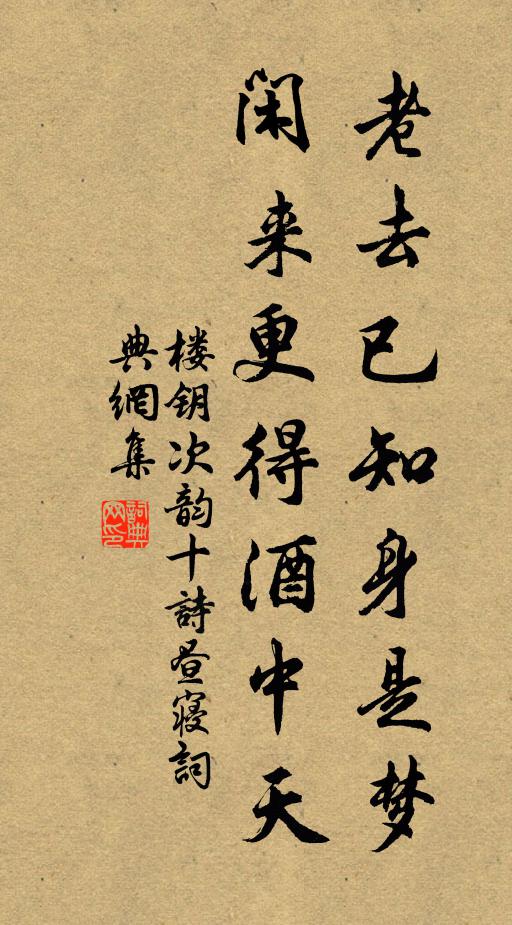 老去已知身是梦
闲来更得酒中天
楼钥次韵十詩昼寝詞
典網集
詞典
网印